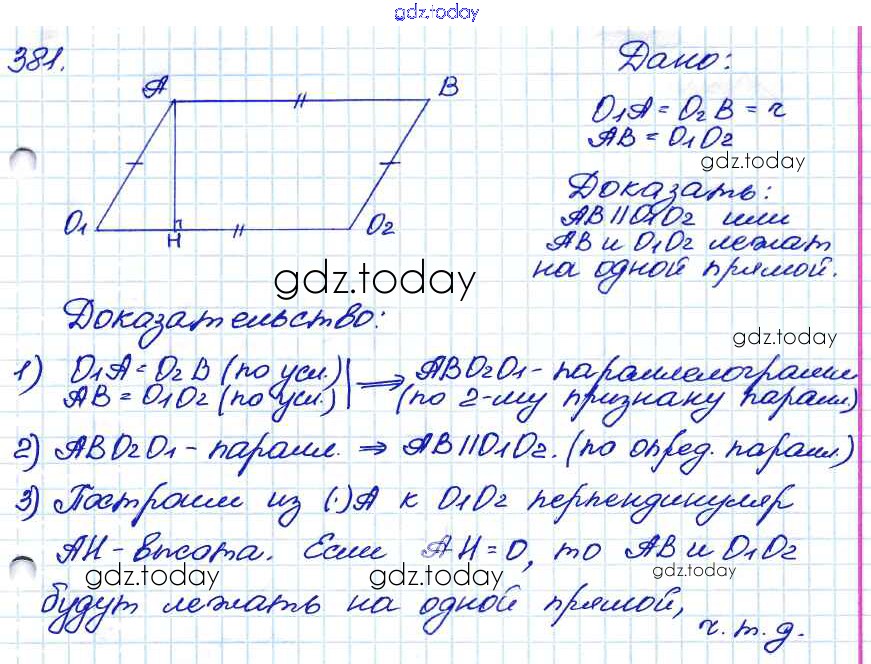 gdz.today
381.
A
B
O1
H
O2
Дано:
O1A = O2B = r
AB = O1O2
gdz.today
Доказать:
AB || O1O2 или
AB и O1O2 лежат
на одной прямой.
gdz.today
Доказательство:
gdz.today
1) O1A = O2B (по усл.) ⟹ ABO2O1 - параллелограмм
AB = O1O2 (по усл.) (по 2-му признаку паралл.)
2) ABO2O1 - паралл. ⇒ AB || O1O2. (по опред. паралл.)
3) Построим из (·)A к O1O2 перпендикуляр
AH - высота. Если AH = 0, то AB и O1O2
gdz.today gdz.today gdz.today
будут лежать на одной прямой,
ч. т. д.